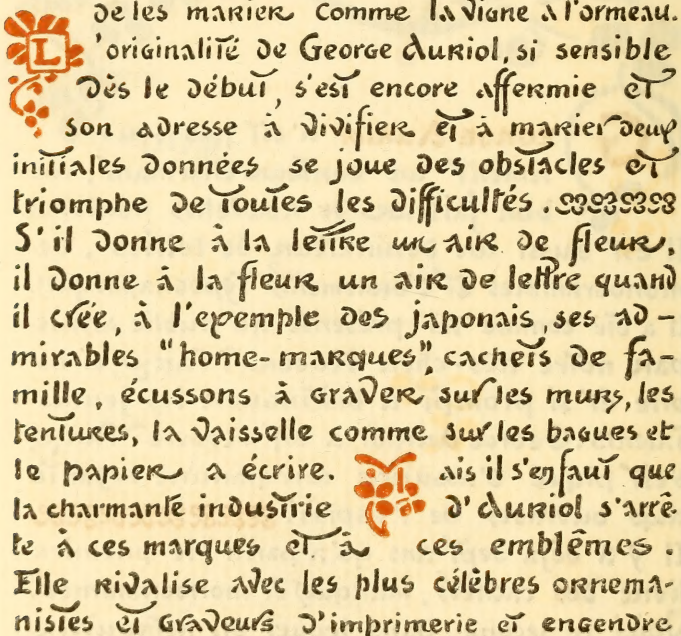 de les marier comme la vigne à l'ormeau.
L'originalité de George Auriol, si sensible
dès le début, s'est encore affermie et
son adresse à vivifier et à marier deux
initiales données se joue des obstacles et
triomphe de toutes les difficultés.
S'il donne à la lettre un air de fleur,
il donne à la fleur un air de lettre quand
il crée, à l'exemple des japonais, ses ad-
mirables "home-marques", cachets de fa-
mille, écussons à graver sur les murs, les
tentures, la vaisselle comme sur les bagues et
le papier a écrire. Mais il s'en faut que
la charmante industrie d'Auriol s'arrê-
te à ces marques et à ces emblêmes.
Elle rivalise avec les plus célèbres ornema-
nistes et graveurs d'imprimerie et engendre